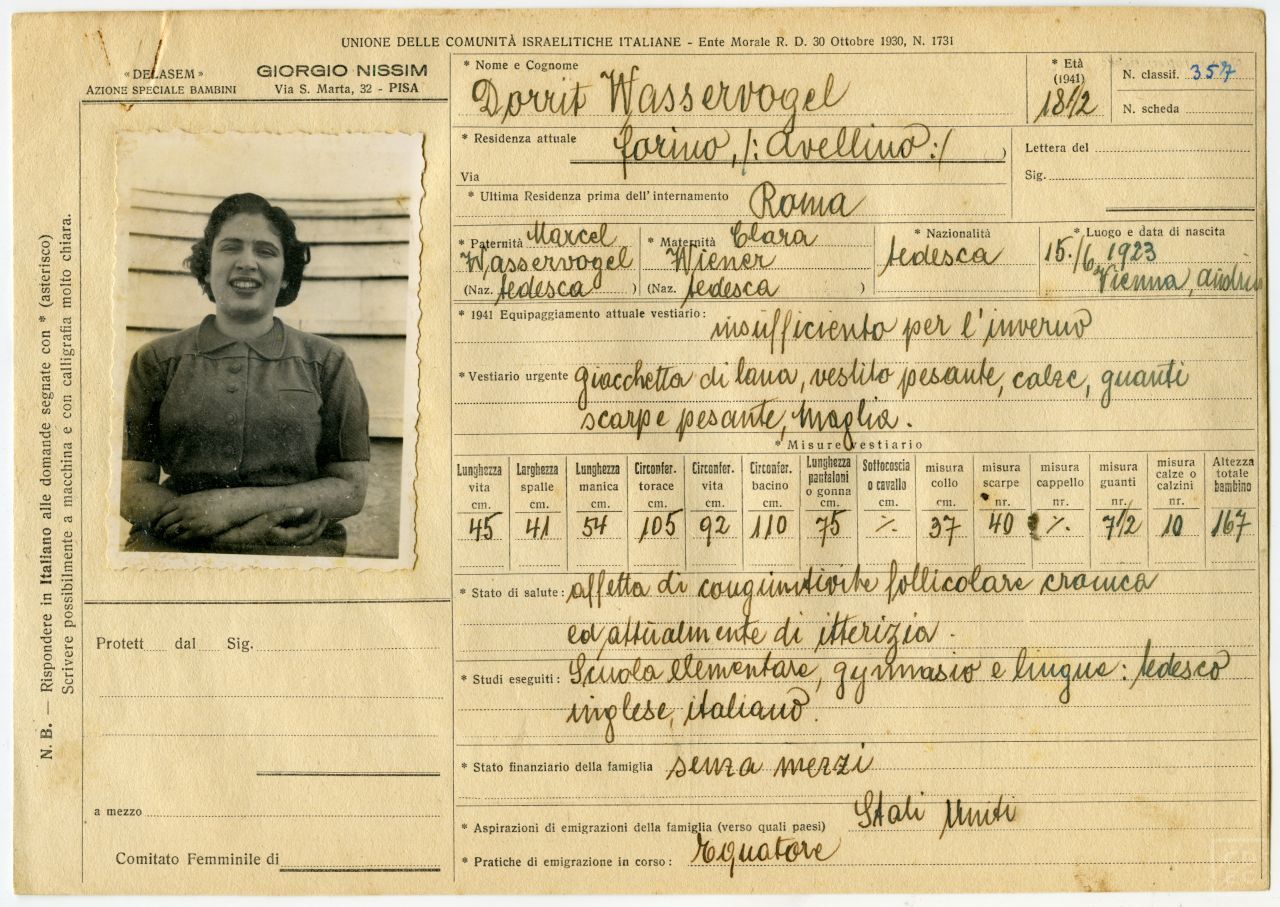 UNIONE DELLE COMUNITÀ ISRAELITICHE ITALIANE - Ente Morale R. D. 30 Ottobre 1930, N. 1731
« DELASEM »
AZIONE SPECIALE BAMBINI
GIORGIO NISSIM
Via S. Marta, 32 - PISA
* Nome e Cognome
Dorrit Wasservogel
* Età
(1941)
18 1/2
N. classif. 357
N. scheda
* Residenza attuale forino, /: Avellino :/ )
Via
Lettera del
Sig.
* Ultima Residenza prima dell'internamento Roma
* Paternità Marcel
Wasservogel
(Naz. tedesca )
* Maternità Clara
Wiener
(Naz. tedesca )
* Nazionalità
tedesca
* Luogo e data di nascita
15./6. 1923
Vienna, Austria
* 1941 Equipaggiamento attuale vestiario: insufficiento per l'inverno
* Vestiario urgente giacchetta di lana, vestito pesante, calze, guanti
scarpe pesante, maglia.
* Misure vestiario
Lunghezza vita cm. 45
Larghezza spalle cm. 41
Lunghezza manica cm. 54
Circonfer. torace cm. 105
Circonfer. vita cm. 92
Circonfer. bacino cm. 110
Lunghezza pantaloni o gonna cm. 75
Sottocoscia o cavallo cm. %
misura collo cm. 37
misura scarpe nr. 40
misura cappello nr. %
misura guanti nr. 7 1/2
misura calze o calzini nr. 10
Altezza totale bambino 167
* Stato di salute: affetta di congiuntivite follicolare cronica
ed attualmente di itterizia.
* Studi eseguiti: Scuola elementare, gymnasio e lingue: tedesco
inglese, italiano.
* Stato finanziario della famiglia senza mezzi
* Aspirazioni di emigrazioni della famiglia (verso quali paesi) Stati Uniti
* Pratiche di emigrazione in corso: Equatore
Protett dal Sig.
a mezzo
Comitato Femminile di
N. B. — Rispondere in Italiano alle domande segnate con * (asterisco)
Scrivere possibilmente a macchina e con calligrafia molto chiara.